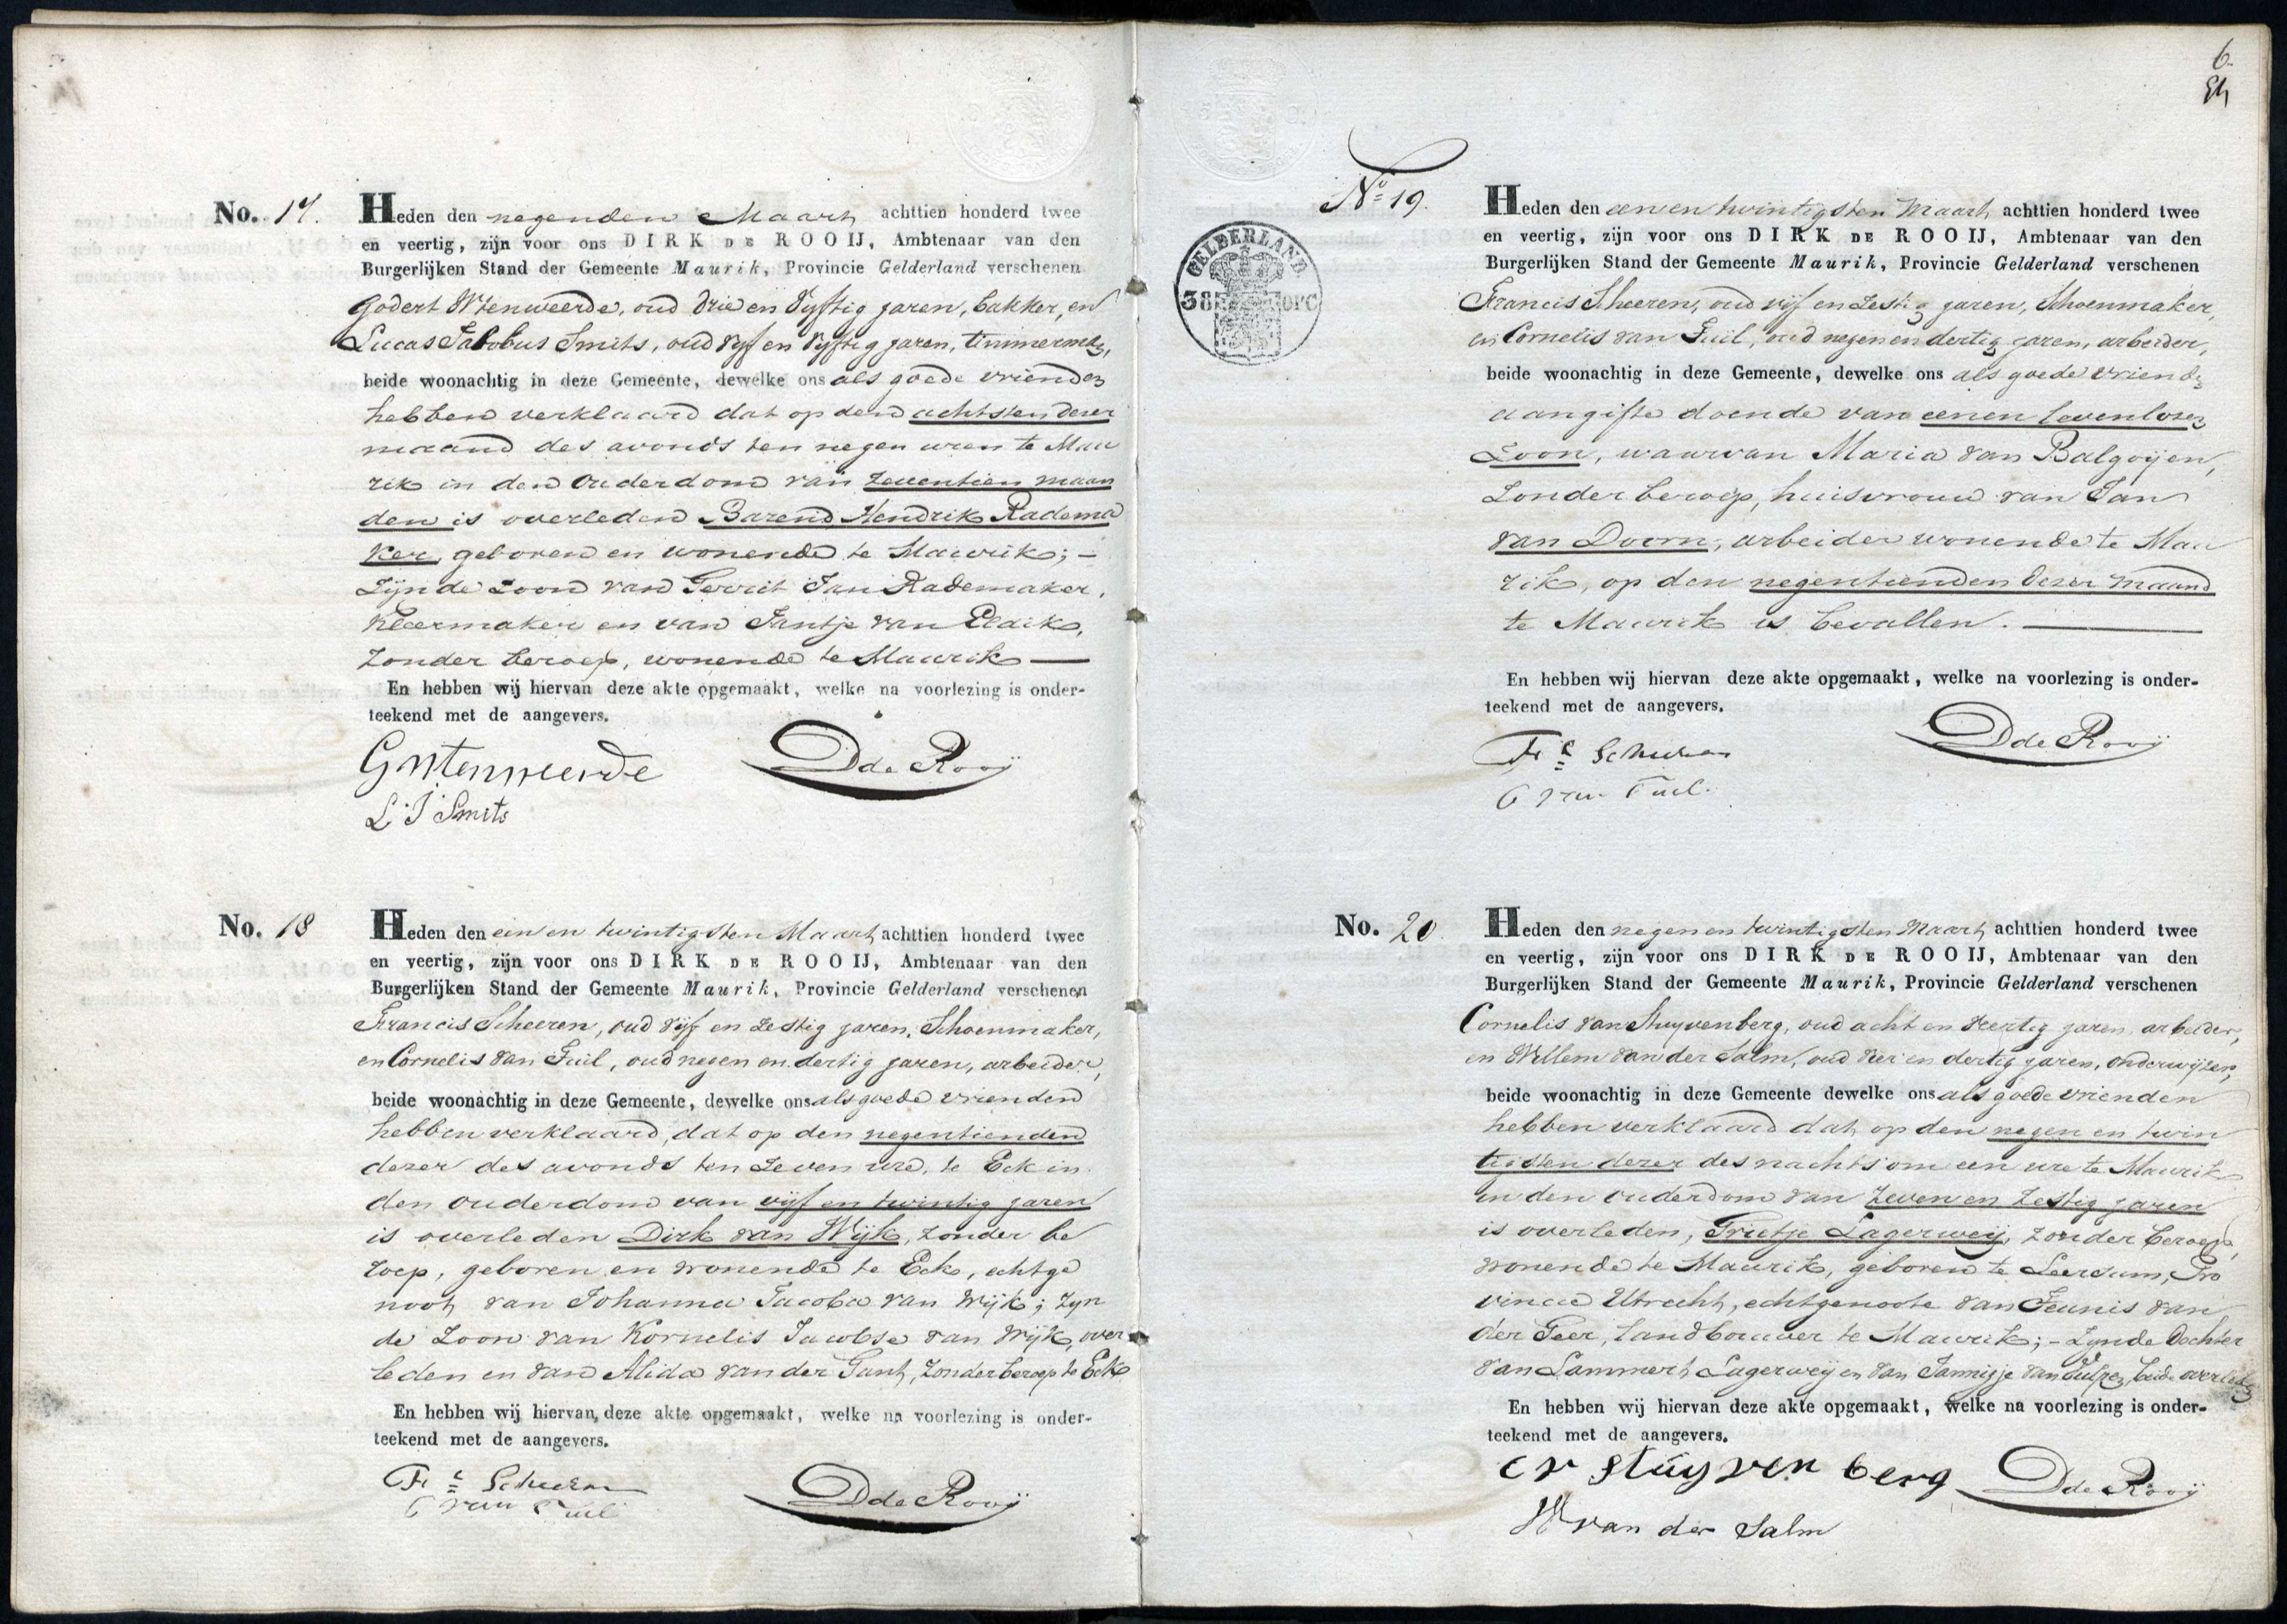 No. 17.
Heden den negenden Maart achttien honderd twee
en veertig, zijn voor ons DIRK DE ROOIJ, Ambtenaar van den
Burgerlijken Stand der Gemeente Maurik, Provincie Gelderland verschenen
Godert Wtenweerde, oud drie en vyftig jaren, bakker, en
Lucas Jakobus Smits, oud vyf en vyftig jaren, timmerman,
beide woonachtig in deze Gemeente, dewelke ons als goede vrienden
hebben verklaard dat op den achtsten dezer
maand des avonds ten negen uren te Mau
rik in den ouderdom van zeventien maan
den is overleden Barend Hendrik Radema
ker, geboren en wonende te Maurik; –
zynde zoon van Gerrit Jan Rademaker,
kleermaker en van Jantje van Eldik,
zonder beroep, wonende te Maurik —
En hebben wij hiervan deze akte opgemaakt, welke na voorlezing is onder-
teekend met de aangevers.
GWtenweerde DdeRooij
L J Smits
No. 18
Heden den een en twintigsten Maart achttien honderd twee
en veertig, zijn voor ons DIRK DE ROOIJ, Ambtenaar van den
Burgerlijken Stand der Gemeente Maurik, Provincie Gelderland verschenen
Francis Scheeren, oud vijf en zestig jaren, Schoenmaker,
en Cornelis van Tuil, oud negen en dertig jaren, arbeider,
beide woonachtig in deze Gemeente, dewelke ons als goede vrienden
hebben verklaard, dat op den negentienden
dezer des avonds ten zeven ure, te Eck in
den ouderdom van vijf en twintig jaren
is overleden Dirk van Wijk, zonder be
roep, geboren en wonende te Eck, echtge
noot van Johanna Jacoba van Wijk; zyn
de zoon van Kornelis Jacobse van Wijk, over
leden en van Alida van der Gant, zonder beroep te Eck
En hebben wij hiervan deze akte opgemaakt, welke na voorlezing is onder-
teekend met de aangevers.
Frs Scheeren DdeRooij
C van Tuil
6
No 19.
GELDERLAND
38 OPC
Heden den eenen twintigsten Maart achttien honderd twee
en veertig, zijn voor ons DIRK DE ROOIJ, Ambtenaar van den
Burgerlijken Stand der Gemeente Maurik, Provincie Gelderland verschenen
Francis Scheeren, oud vijf en zestig jaren, Schoenmaker,
en Cornelis van Tuil, oud negen en dertig jaren, arbeider,
beide woonachtig in deze Gemeente, dewelke ons als goede vrienden
aangifte doende van eenen levenlozen
Zoon, waarvan Maria van Balgoijen,
zonder beroep, huisvrouw van Jan
van Doorn, arbeider wonende te Mau
rik, op den negentienden dezer maand
te Maurik is bevallen. —
En hebben wij hiervan deze akte opgemaakt, welke na voorlezing is onder-
teekend met de aangevers.
Frs Scheeren DdeRooij
C van Tuil.
No. 20
Heden den negen en twintigsten Maart achttien honderd twee
en veertig, zijn voor ons DIRK DE ROOIJ, Ambtenaar van den
Burgerlijken Stand der Gemeente Maurik, Provincie Gelderland verschenen
Cornelis van Stuyvenberg, oud acht en veertig jaren, arbeider,
en Willem van der Salm, oud vier en dertig jaren, onderwijzer,
beide woonachtig in deze Gemeente dewelke ons als goede vrienden
hebben verklaard dat op den negen en twin
tigsten dezer des nachts om een ure te Maurik
in den ouderdom van zeven en zestig jaren
is overleden, Grietje Lagerweij, zonder beroep,
wonende te Maurik, geboren te Leersum, Pro
vincie Utrecht, echtgenoote van Teunis van
der Geer, landbouwer te Maurik; – zynde dochter
van Lammert Lagerweij en van Jannigje van Tulpen, beide overleden
En hebben wij hiervan deze akte opgemaakt, welke na voorlezing is onder-
teekend met de aangevers.
C v stuyvenberg DdeRooij
W van der Salm